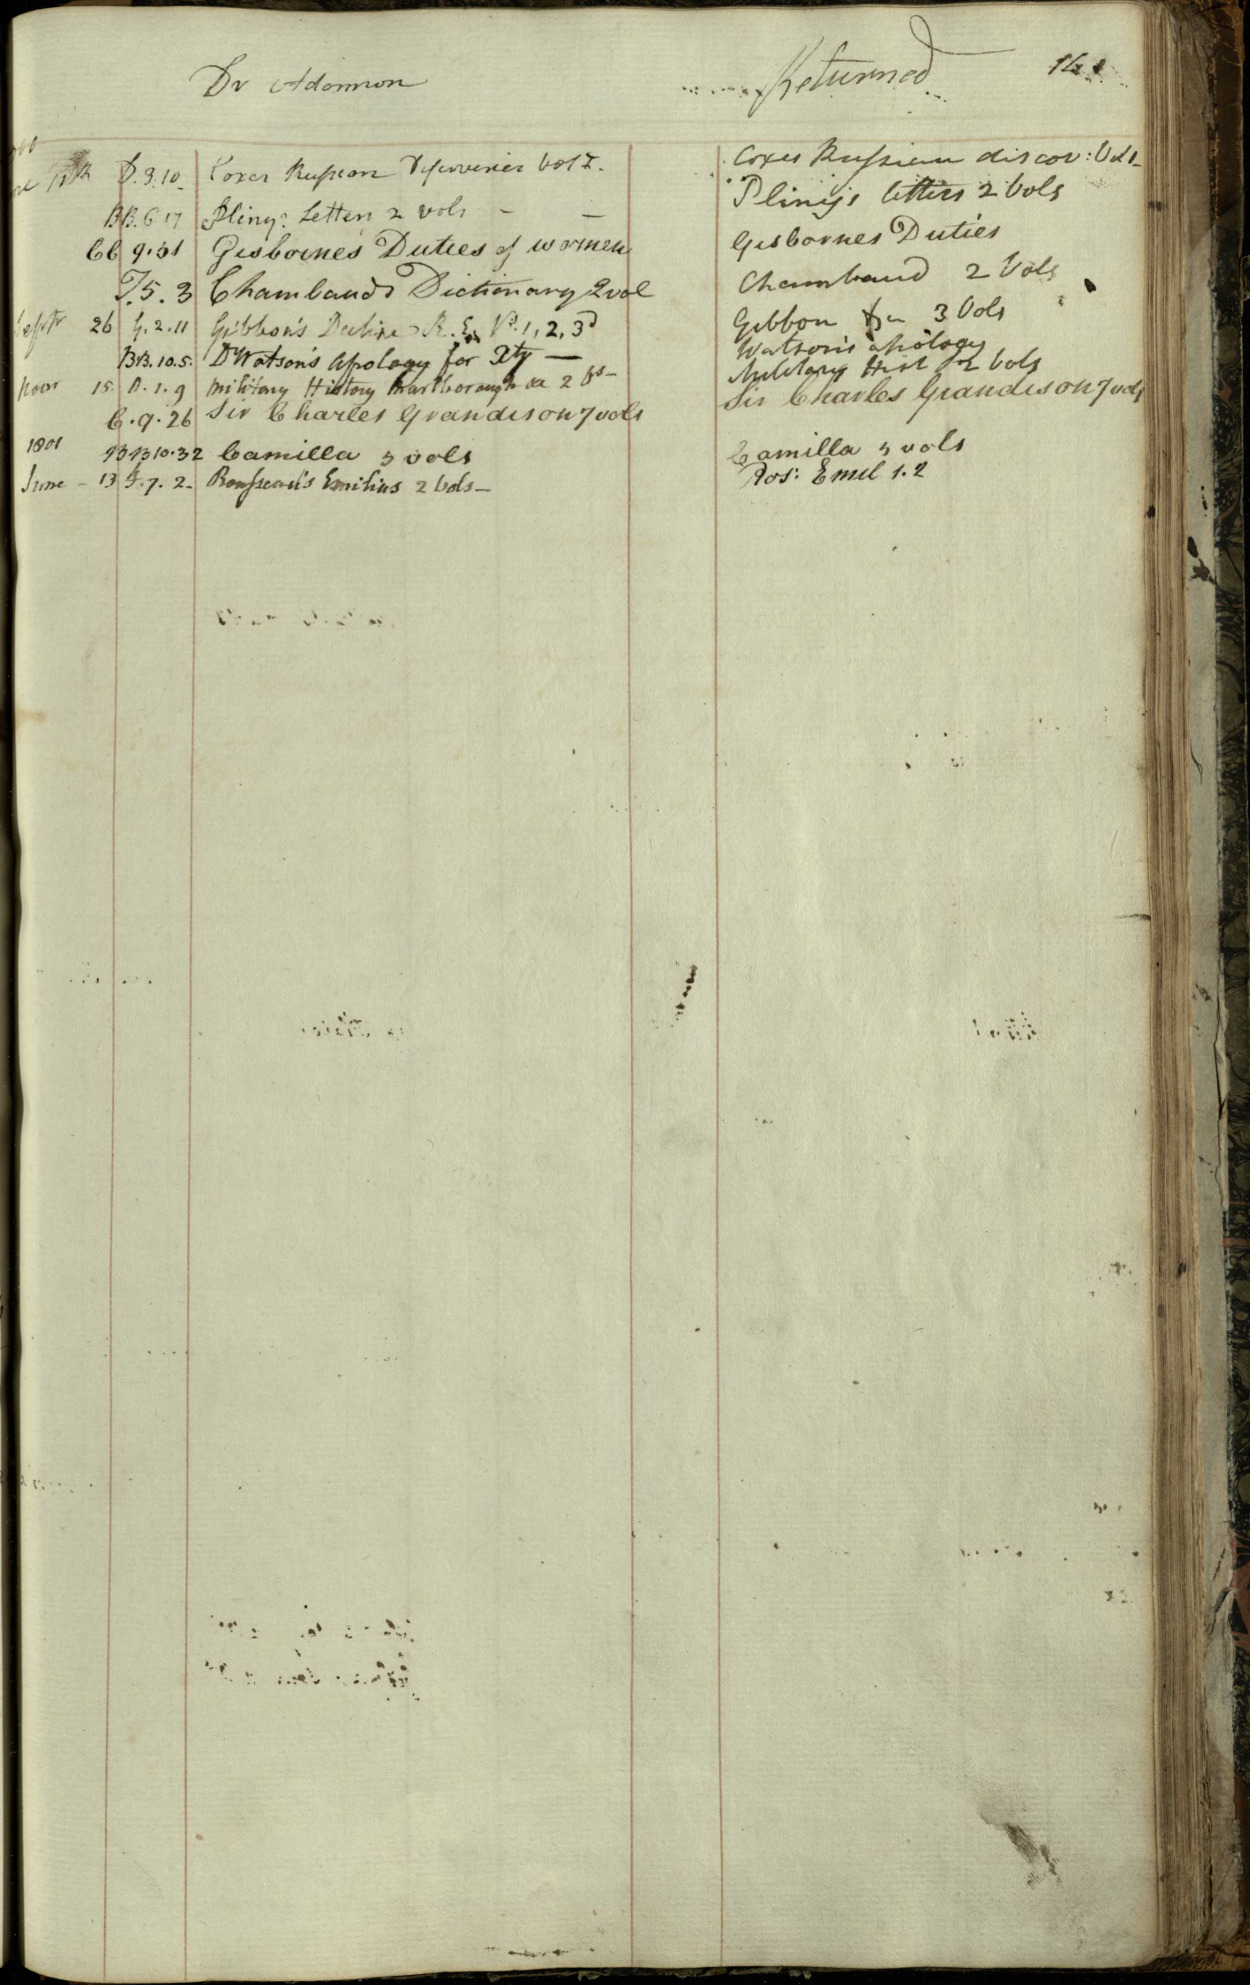 Dr Adamson Returned 161
D.3.10 Coxes Russian Discoveries Vol I. Coxes Russian discov: Vol 1
BB.6.17 Pliny's Letters 2 vols — — Pliny's letters 2 Vols
CC 9.31 Gisborne's Duties of women Gisbornes Duties
T.5.3 Chambauds Dictionary 2 vol Chambaud 2 Vols
Septr 26 G.2.11 Gibbon's Decline R. E. Vs. 1, 2, 3d Gibbon 3 Vols
BB.10.5. Dr Watson's Apology for Xty — Watson's apology
Novr 15 D.1.9 Military History Marlborough &c 2 Vs— Military Hist 2 vols
C.9.26 Sir Charles Grandison 7 vols Sir Charles Grandison 7 vols
1801 BB10.32 Camilla 5 vols Camilla 5 vols
June – 13 F.7.2. Rousseau's Emilius 2 Vols— Ros: Emil 1.2